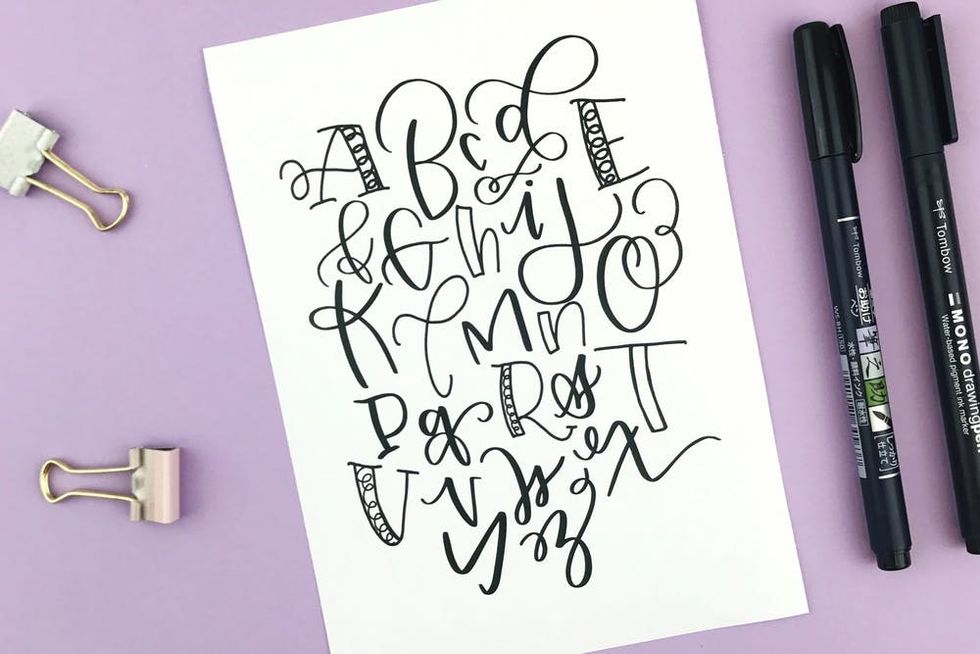 A B c d E
f G h i J
K l M n O
P q R s T
U v w x
y z
Tombow
筆 之
水性
しっかり
仕立て
Tombow
MONO drawing
Water-based pigment ink marker